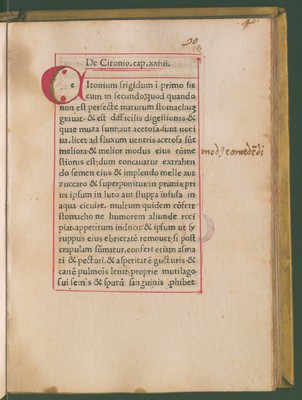 De Citonio. cap. xxiiii.
Citonium frigidum ī primo sic
cum in secundo ꝗuod quando
non est perfecte maturum stomachuȝ
grauat· & est difficilis digestionis·&
acetosa·sunt noci
ua. licet ad fluxum uentris acetosa sūt
meliora·& melior modus eius cōme
stionis est·
do semen eius & implendo melle aut
zuccaro & superponitur in prunis·pri
us ipsum in luto aut stuppa infusa in
aqua cicuire. multum quidem cōfert
stomacho ne humorem aliunde reci
piat·appetitum inducit & ipsum ut sy
ruppus eius ebrietatē remouet·si post
crapulam sūmatur. confert etiam asma
ti & pectori·& asperitatē gucturis·&
canē pulmōis lenit·proprie mutilago·
sui semīs·& sputū sanguinis ꝓhibet